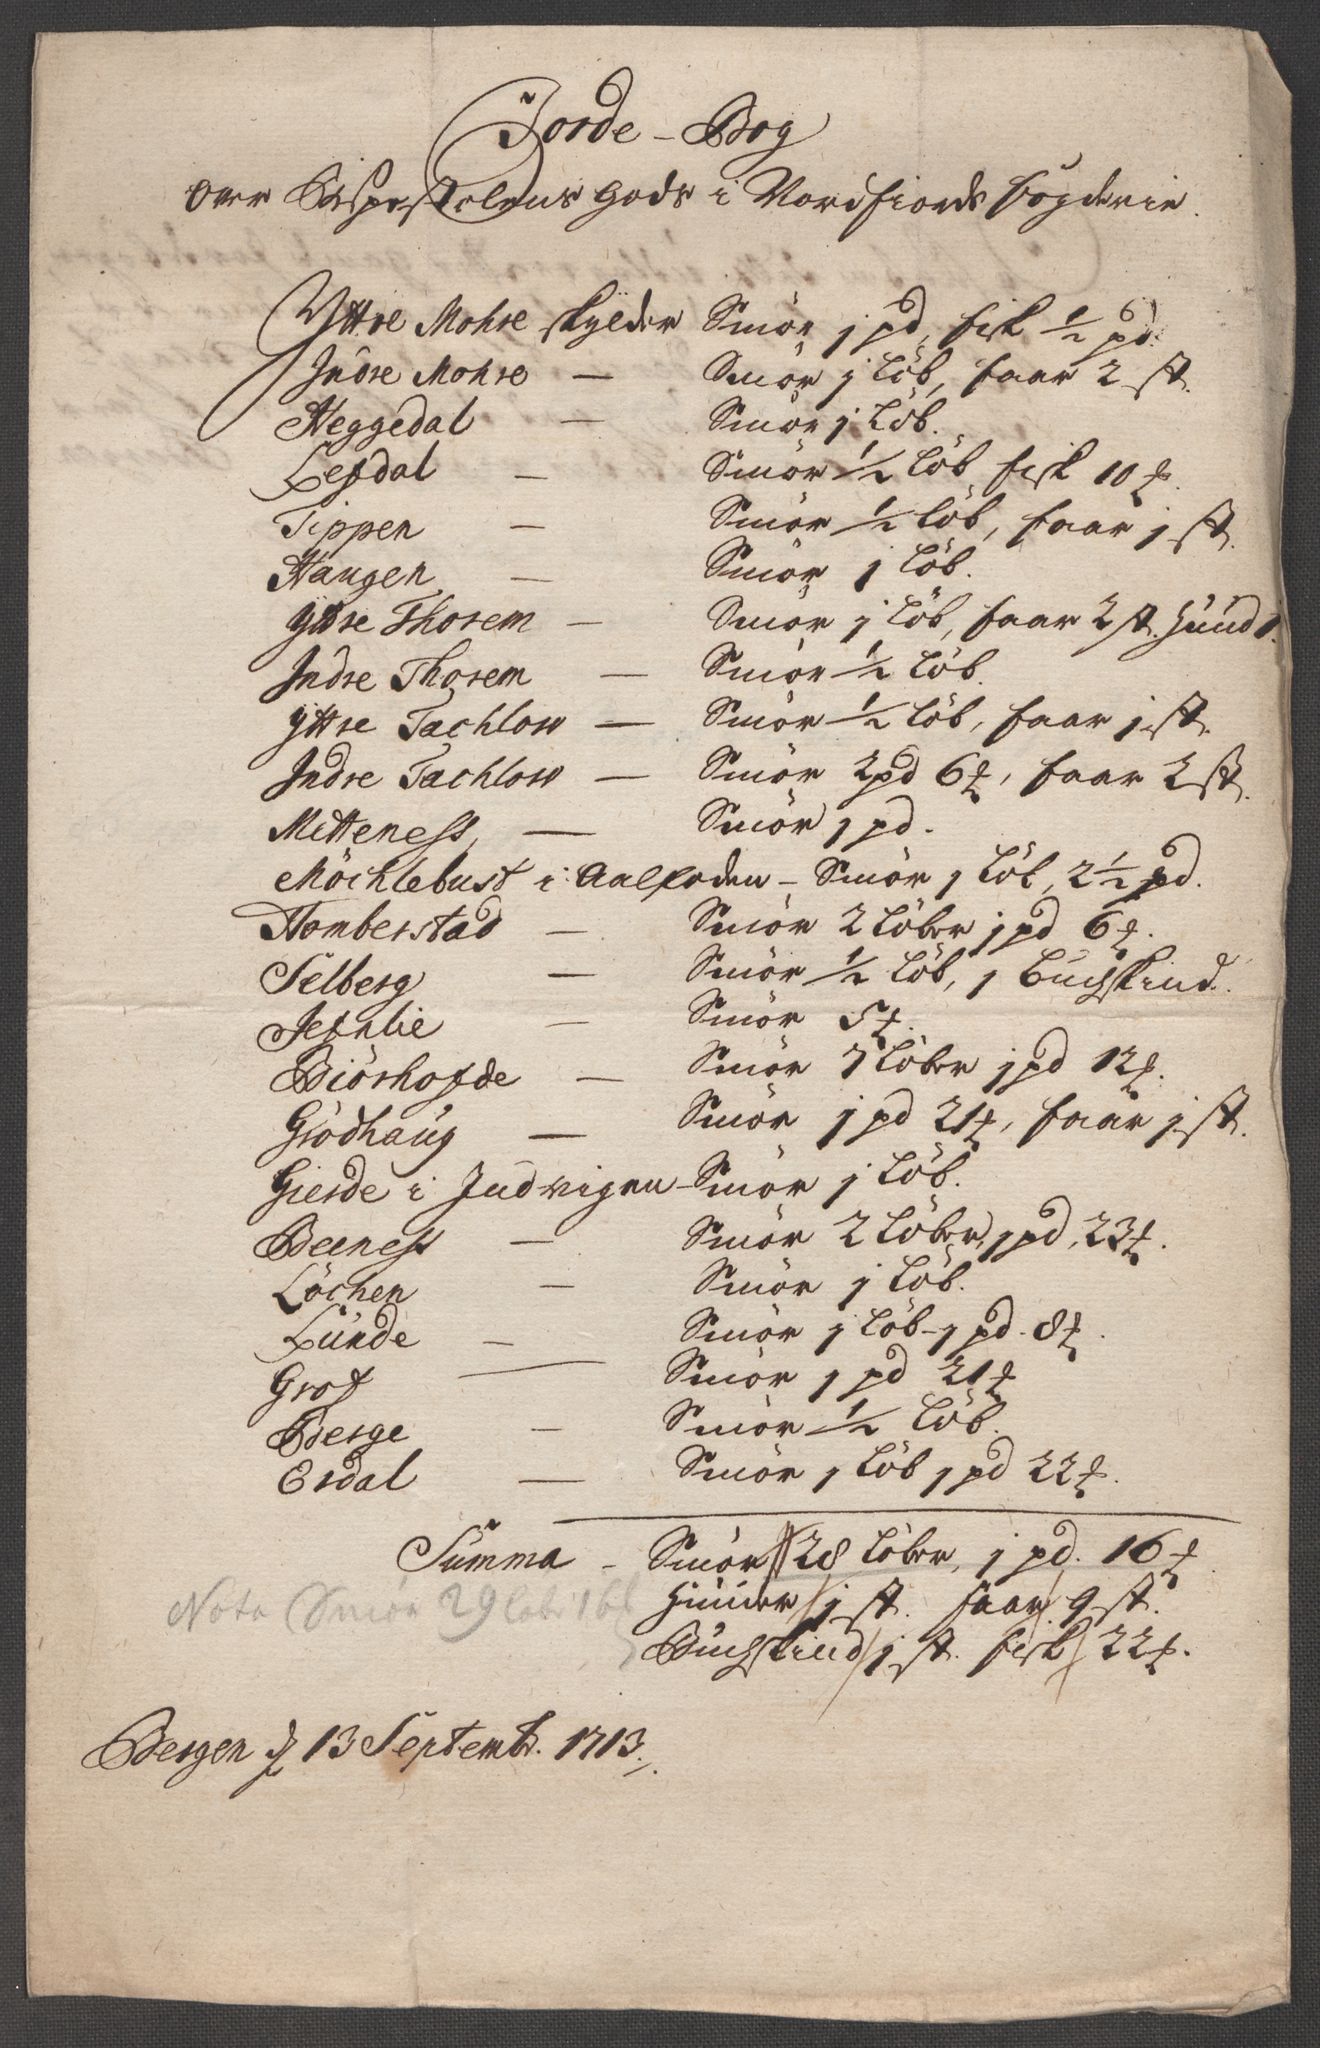 Jorde-Bog
over Bispestolens gods i Nordfiords fögderie.
Yttre Mohre skylder Smör j pd, fisk 1/2 pd.
Indre Mohre — Smör j Löb, faar 2 st.
Heggedal — Smör j Löb.
Lefdal — Smör 1/2 Löb fisk 10 ℔.
Tippen — Smör 1/2 Löb, faar j st.
Haugen — Smör j Löb.
Ydre Thorem — Smör j Löb, faar 2 st. Huud 1.
Indre Thorem — Smör 1/2 Löb.
Yttre Tachlow — Smör 1/2 Löb, faar j st.
Indre Tachlow — Smör 2 pd 6 ℔, faar 2 st.
Metteness — Smör j pd.
Möchlebust i Aalfoden - Smör j Löb, 2 1/2 pd.
Homberstad — Smör 2 Löber j pd 6 ℔.
Selberg — Smör 1/2 Löb, j Buchskind.
Jefnlie — Smör 5 ℔.
Biörhofde — Smör 7 Löber j pd 12 ℔.
Grödhaug — Smör j pd 21 ℔, faar j st.
Gierde i Indvigen - Smör j Löb.
Beeness — Smör 2 Löber, j pd, 23 ℔.
Löchen — Smör j Löb.
Lunde — Smör j Löb - j pd. 8 ℔.
Grof — Smör j pd 21 ℔
Berge — Smör 1/2 Löb.
Erdal — Smör j Löb j pd 22 ℔.
Summa - Smör 28 Löber, j pd. 16 ℔
Huuder j st. faar 9 st.
Nota Smör 29 Löb 16 ℔
Buchskind j st. fisk 22 ℔.
Bergen d 13 Septembr. 1713.